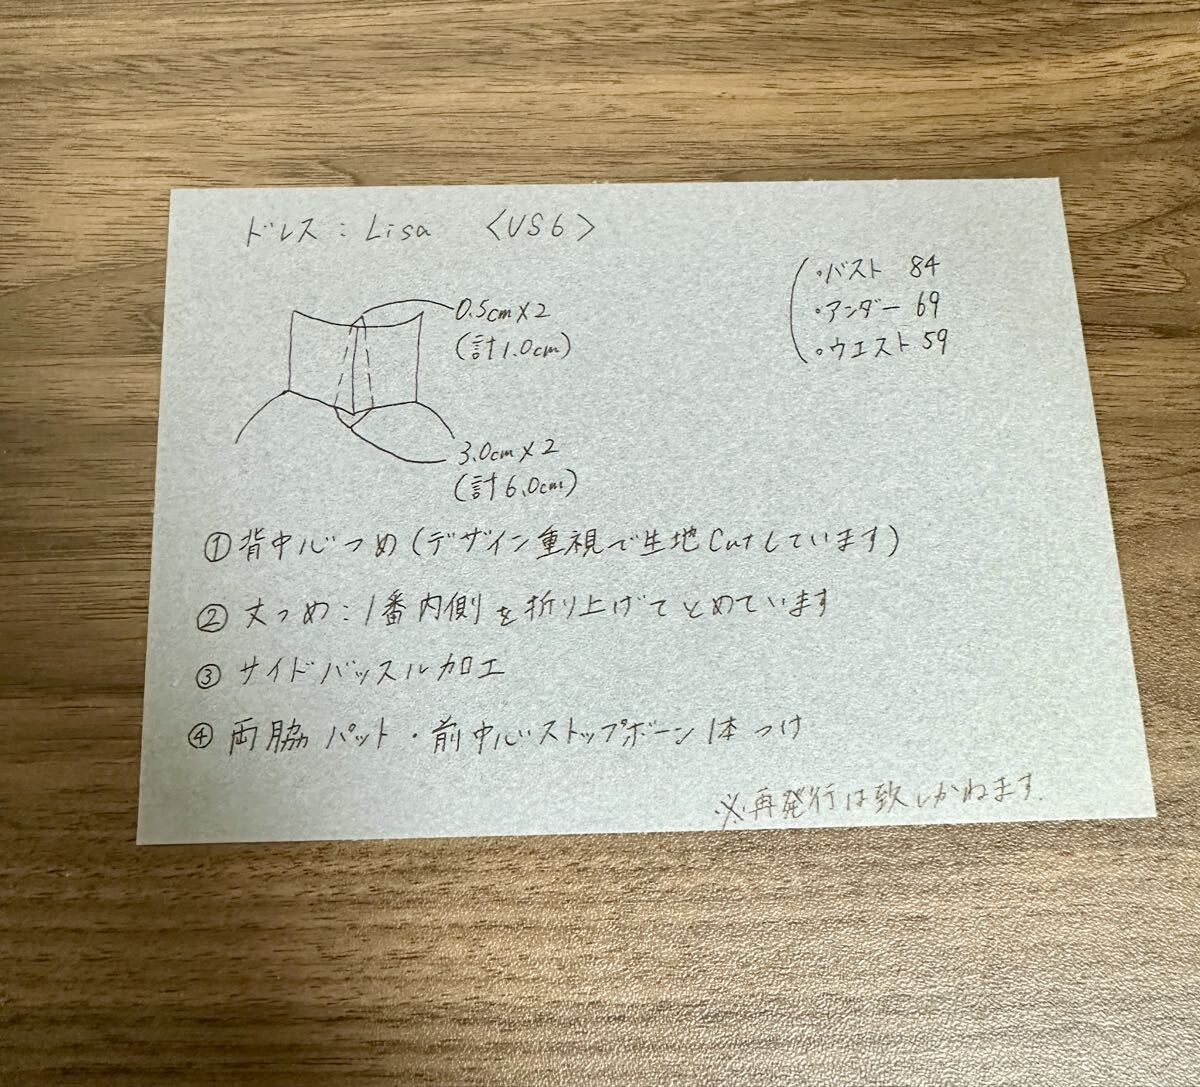 ドレス：Lisa 〈US6〉
・バスト 84
・アンダー 69
・ウエスト 59
0.5cm×2
(計1.0cm)
3.0cm×2
(計6.0cm)
①背中心つめ(デザイン重視で生地Cutしています)
②丈つめ：1番内側を折り上げてとめています
③サイドバッスル加工
④両脇パット・前中心ストップボーン1本つけ
※再発行は致しかねます.